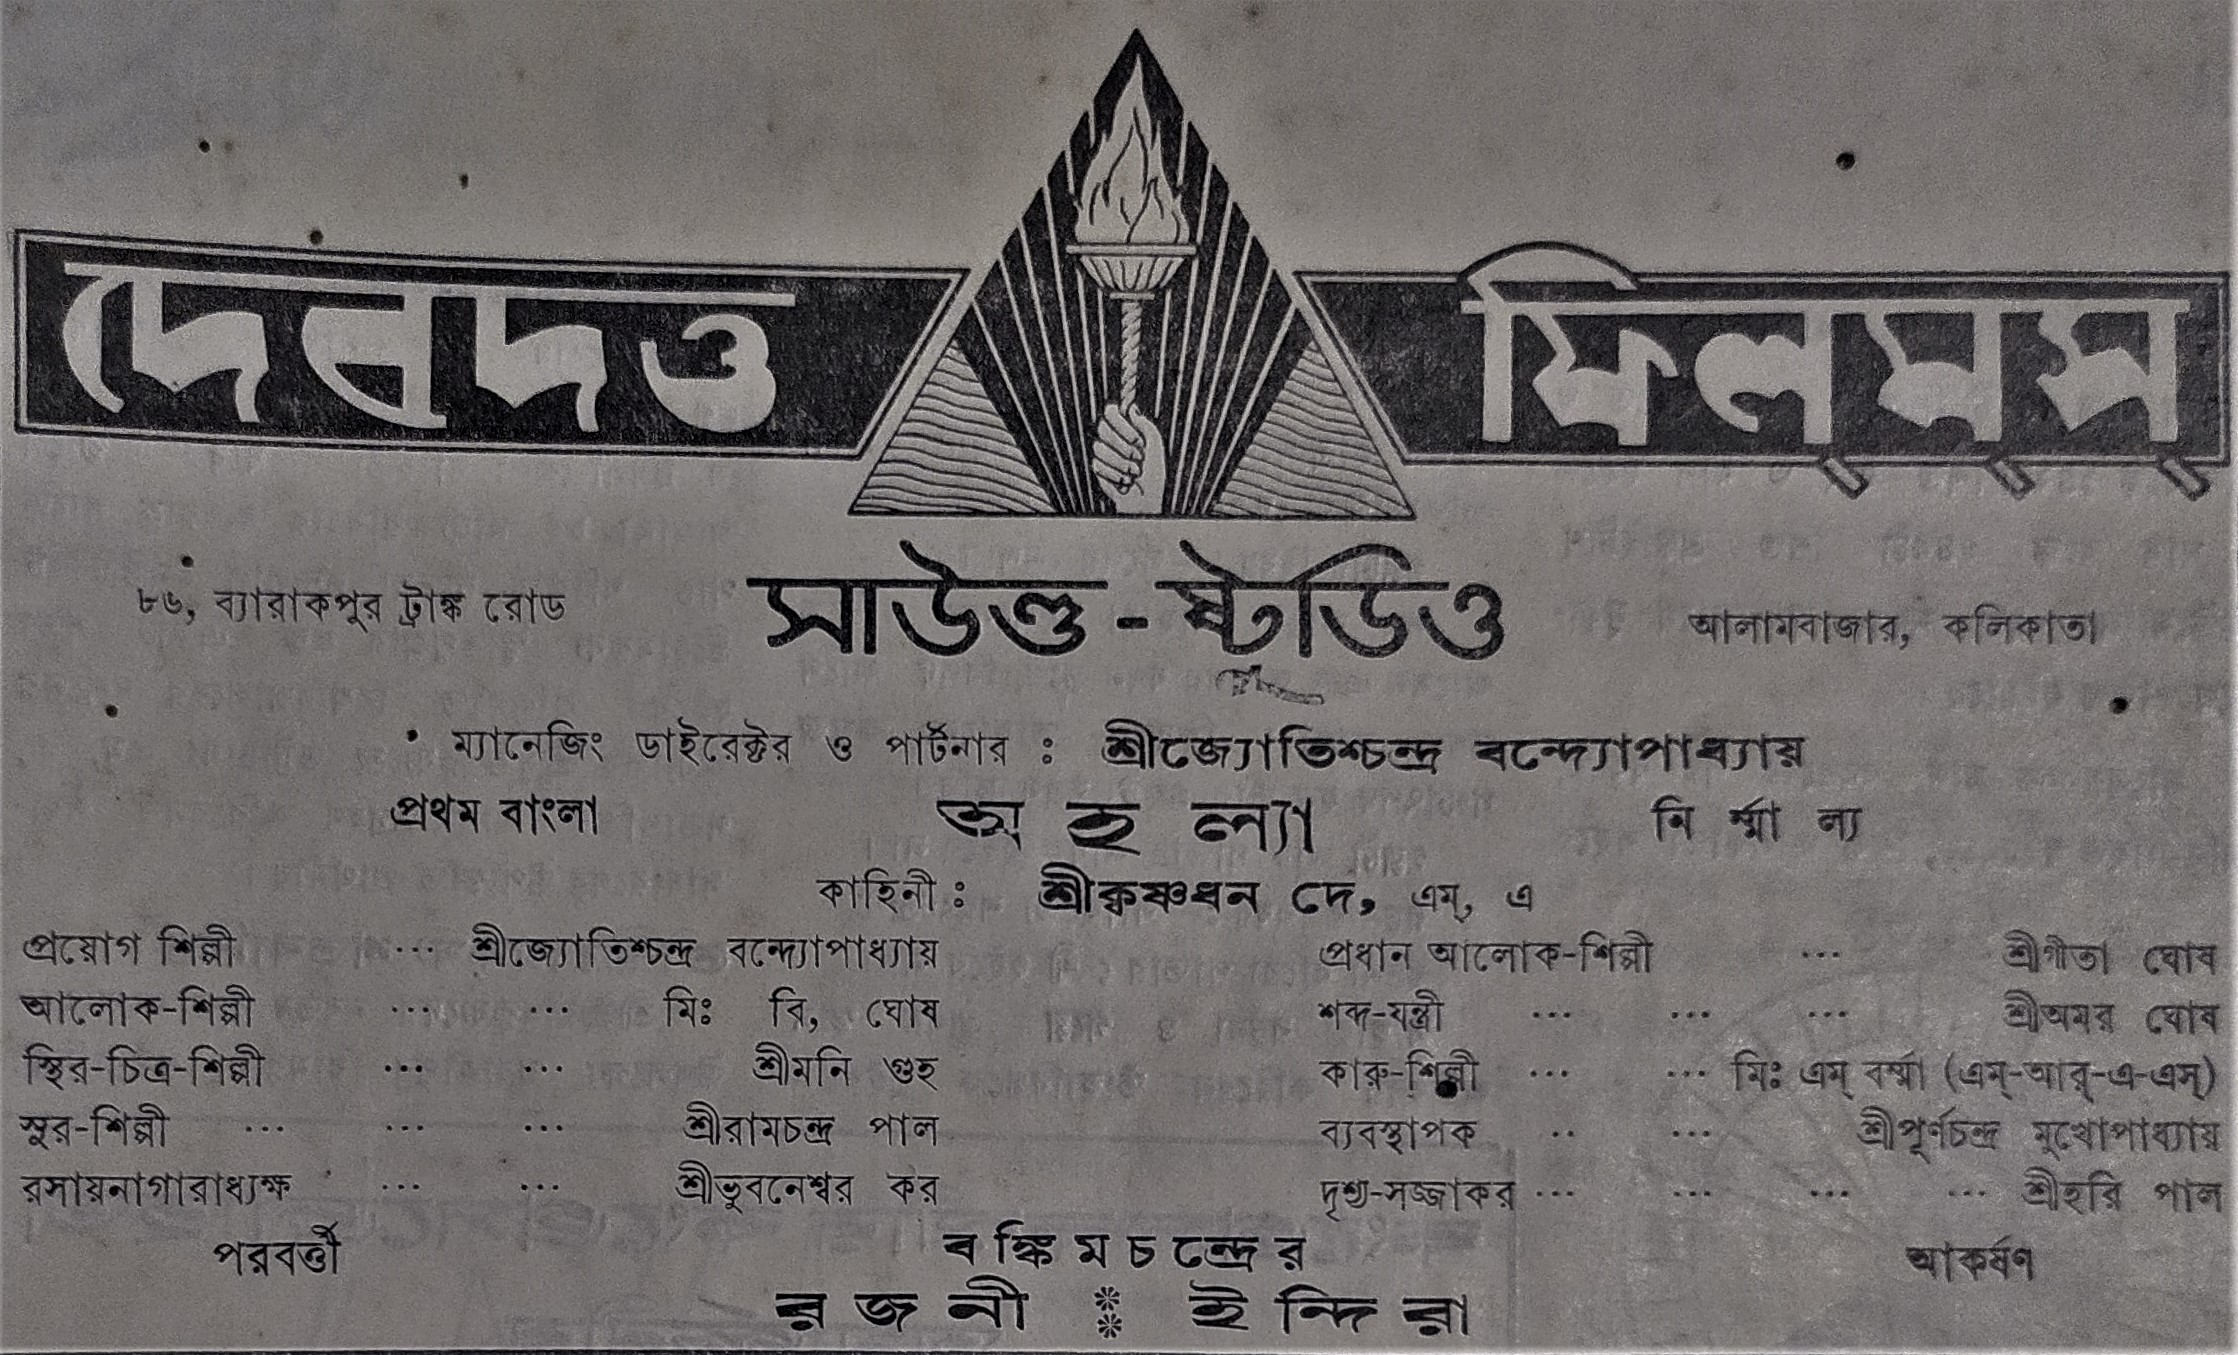 দেবদত্ত ফিল্‌ম্‌স্
সাউণ্ড-ষ্টুডিও
৮৬, ব্যারাকপুর ট্রাঙ্ক রোড আলামবাজার, কলিকাতা
ম্যানেজিং ডাইরেক্টর ও পার্টনার : শ্রীজ্যোতিশ্চন্দ্র বন্দ্যোপাধ্যায়
প্রথম বাংলা অহল্যা নির্ম্মাল্য
কাহিনী : শ্রীকৃষ্ণধন দে, এম্, এ
প্রয়োগ শিল্পী ... শ্রীজ্যোতিশ্চন্দ্র বন্দ্যোপাধ্যায় প্রধান আলোক-শিল্পী ... শ্রীগীতা ঘোষ
আলোক-শিল্পী ... ... মিঃ বি, ঘোষ শব্দ-যন্ত্রী ... ... ... শ্রীঅমর ঘোষ
স্থির-চিত্র-শিল্পী ... ... শ্রীমনি গুহ কারু-শিল্পী ... ... মিঃ এম্ বর্ম্মা (এম্-আর্-এ-এস্)
সুর-শিল্পী ... ... ... শ্রীরামচন্দ্র পাল ব্যবস্থাপক .. ... শ্রীপূর্ণচন্দ্র মুখোপাধ্যায়
রসায়নাগারাধ্যক্ষ ... ... শ্রীভুবনেশ্বর কর দৃশ্য-সজ্জাকর ... ... ... ... শ্রীহরি পাল
পরবর্ত্তী বঙ্কিমচন্দ্রের আকর্ষণ
রজনী : ইন্দিরা